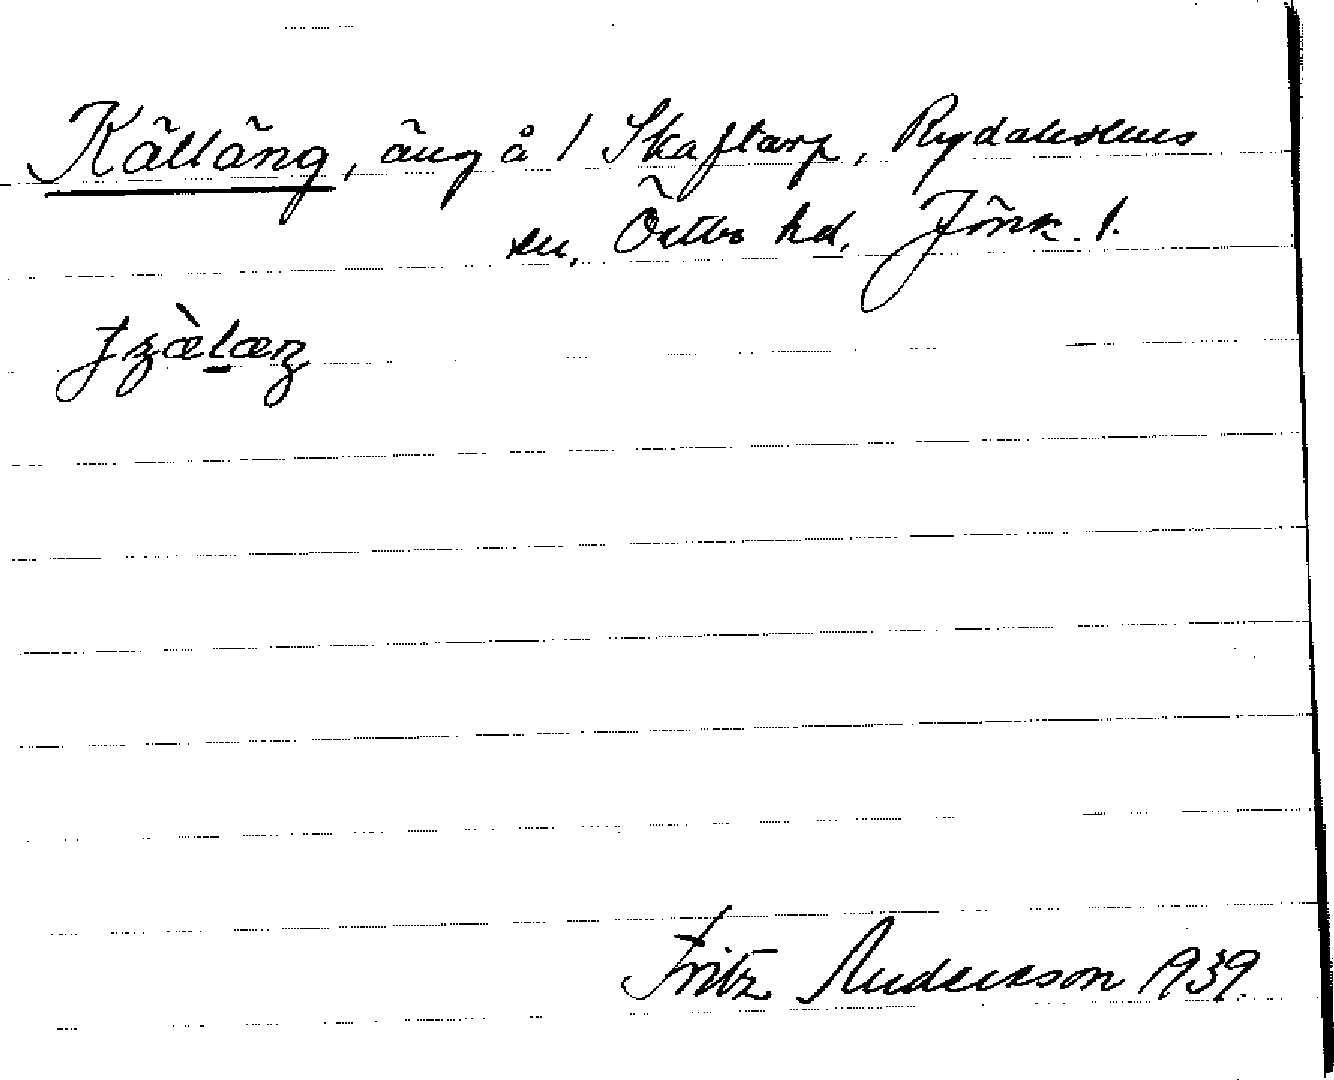 Källäng, äng å 1 Skaftarp, Rydaholms
sn, Östbo hd, Jönk. l.
Fritz Anderson 1939.